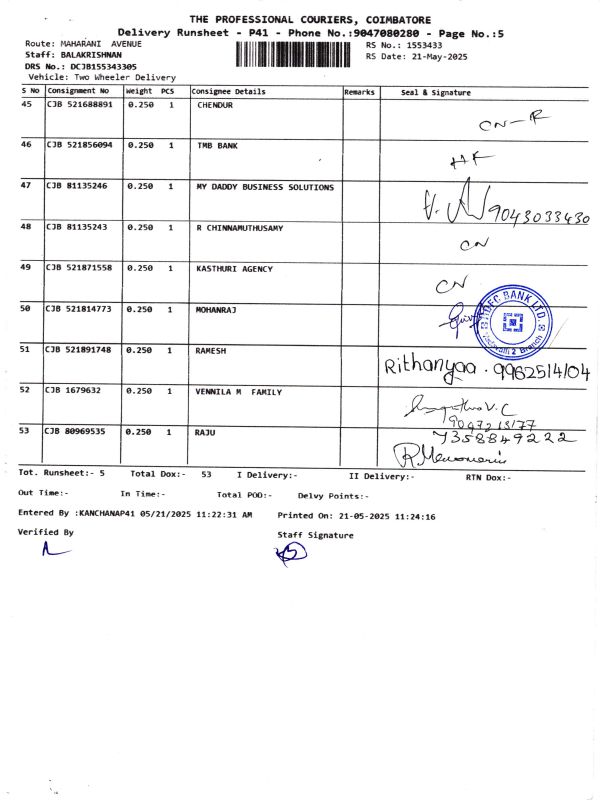 THE PROFESSIONAL COURIERS, COIMBATORE
Delivery Runsheet - P41 - Phone No.:9047080280 - Page No.:5
Route: MAHARANI AVENUE RS No.: 1553433
Staff: BALAKRISHNAN RS Date: 21-May-2025
DRS No.: DCJB155343305
Vehicle: Two Wheeler Delivery
S No Consignment No Weight PCS Consignee Details Remarks Seal & Signature
45 CJB 521688891 0.250 1 CHENDUR
CN-R
46 CJB 521856094 0.250 1 TMB BANK
47 CJB 81135246 0.250 1 MY DADDY BUSINESS SOLUTIONS
9043033430
48 CJB 81135243 0.250 1 R CHINNAMUTHUSAMY
CN
49 CJB 521871558 0.250 1 KASTHURI AGENCY
CN
50 CJB 521814773 0.250 1 MOHANRAJ
HDFC BANK LTD.
51 CJB 521891748 0.250 1 RAMESH
Rithanyaa . 9962514104
52 CJB 1679632 0.250 1 VENNILA M FAMILY
53 CJB 80969535 0.250 1 RAJU
7358849222
Tot. Runsheet:- 5 Total Dox:- 53 I Delivery:- II Delivery:- RTN Dox:-
Out Time:- In Time:- Total POD:- Delvy Points:-
Entered By :KANCHANAP41 05/21/2025 11:22:31 AM Printed On: 21-05-2025 11:24:16
Verified By Staff Signature